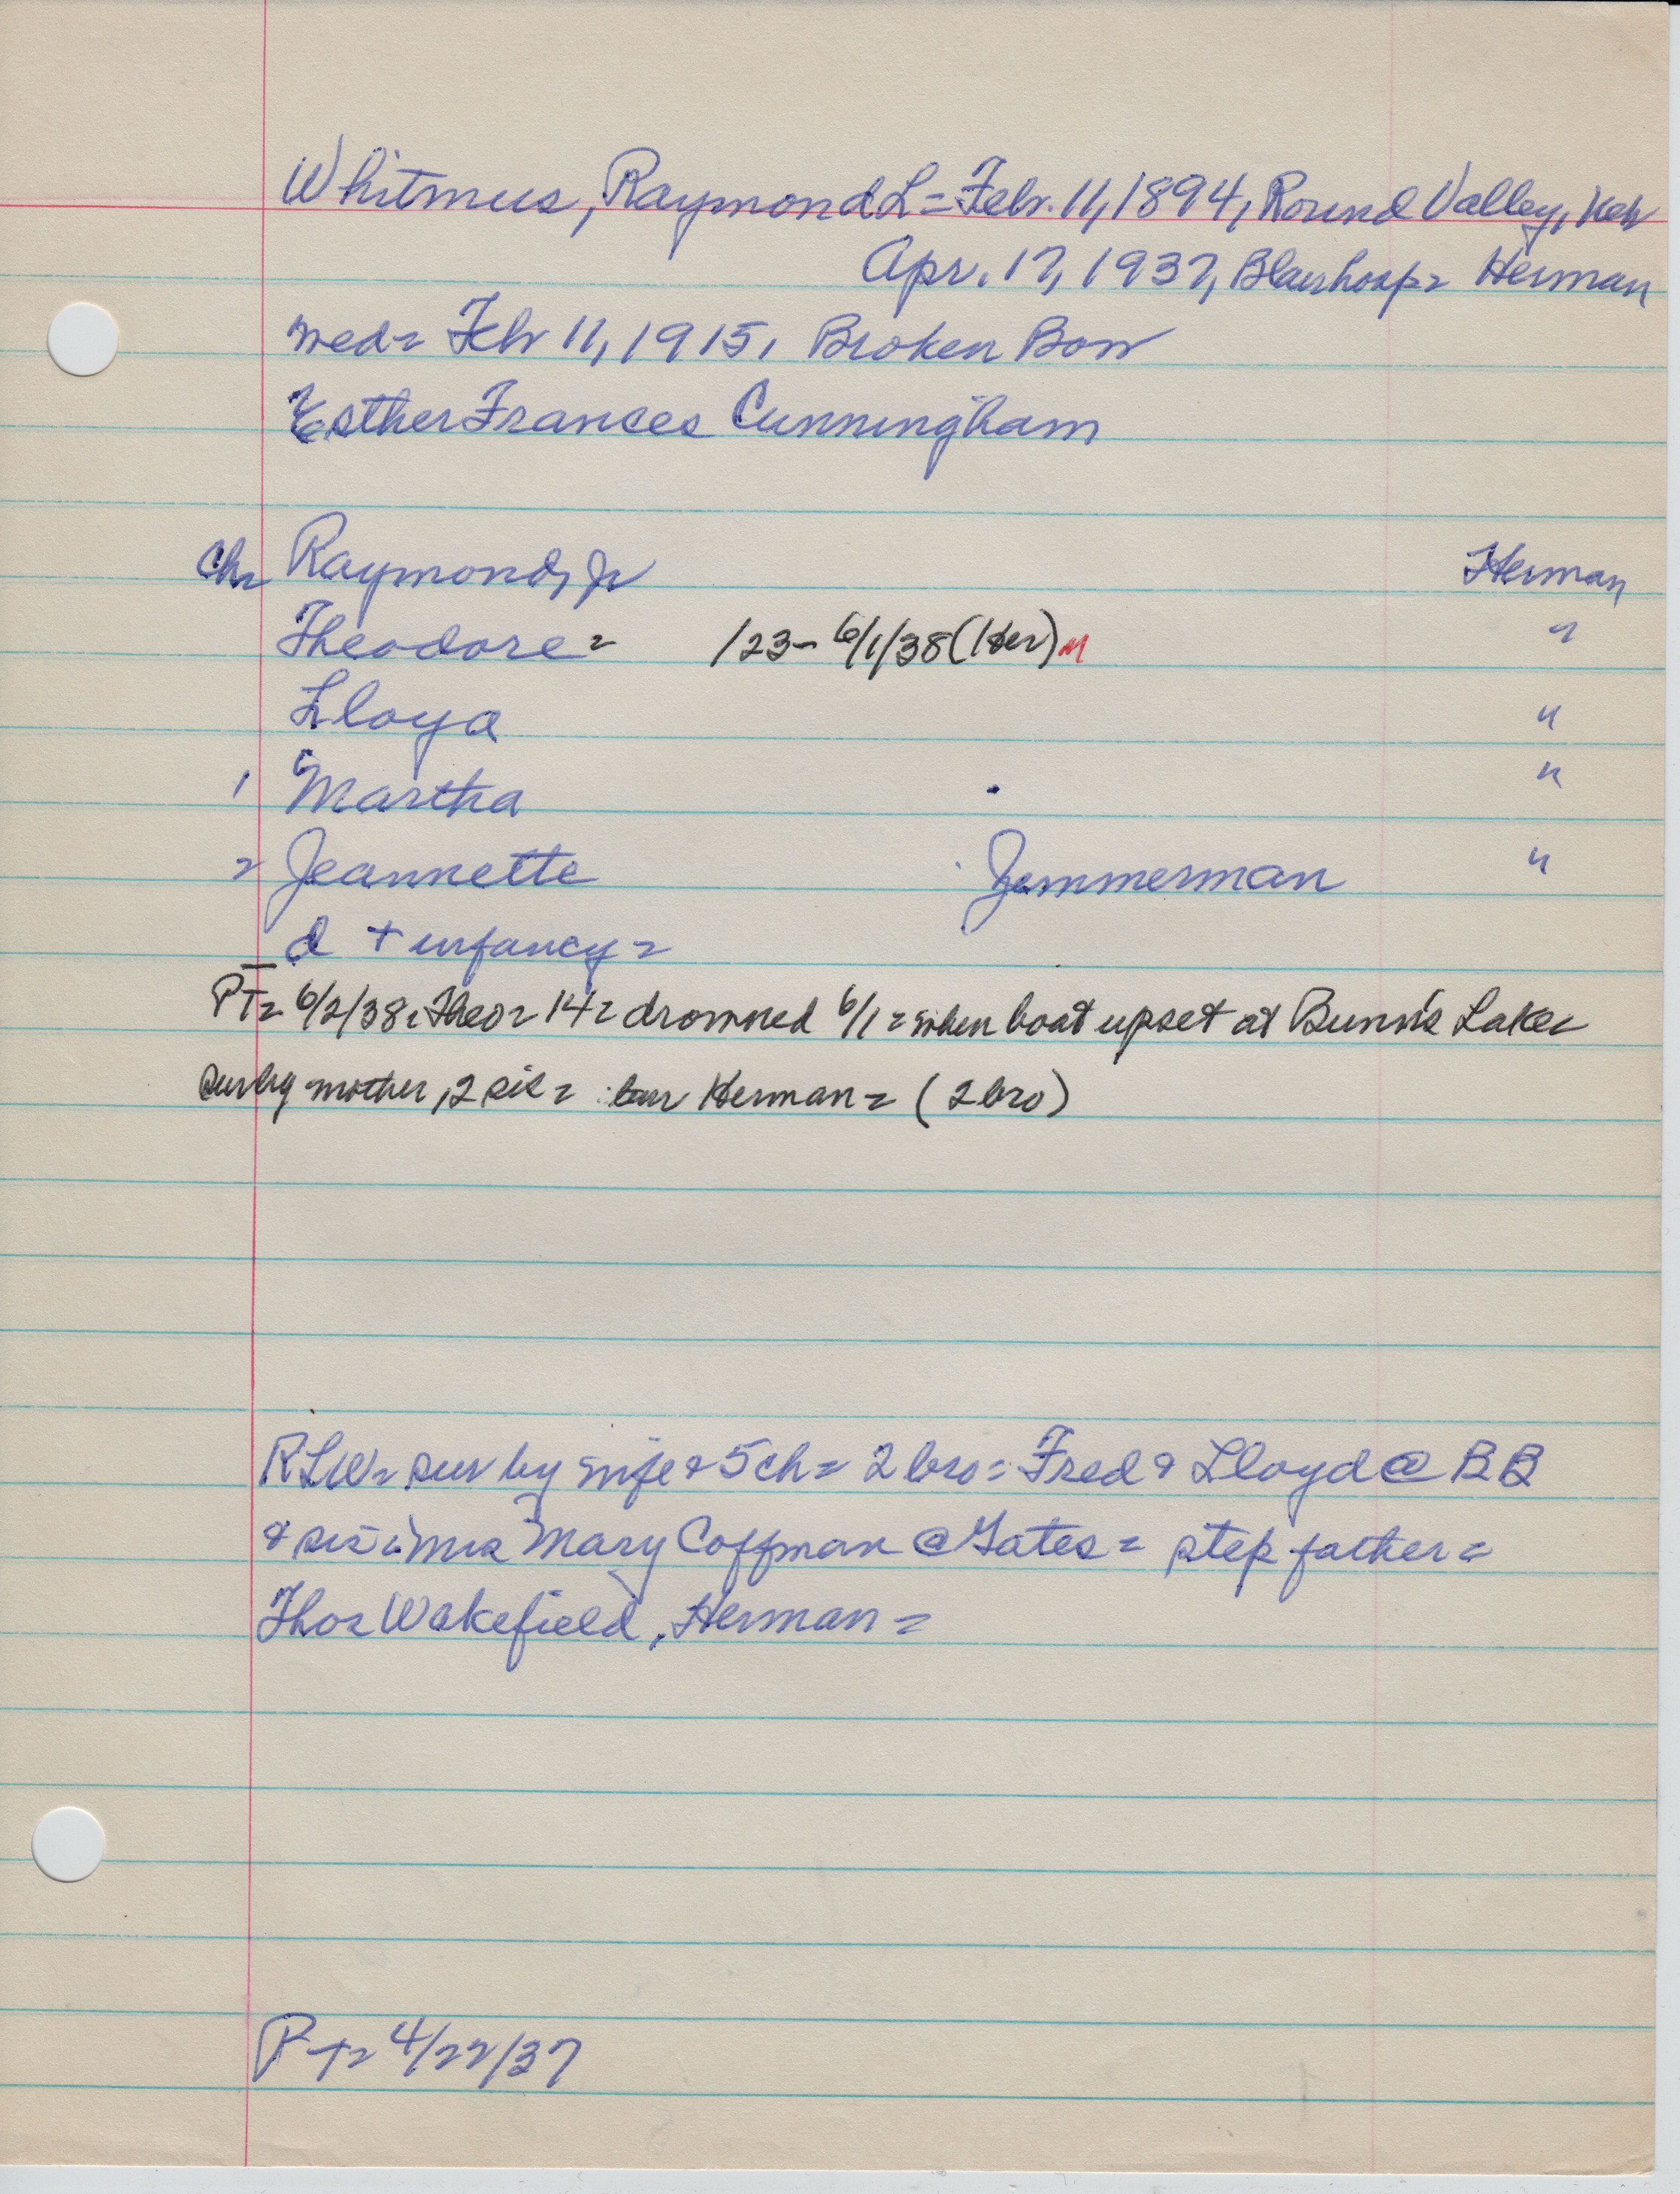 Whitmus, Raymond L = Febr. 11, 1894, Round Valley, Neb
Apr. 17, 1937, Blair hosp = Herman
wed = Feb 11, 1915, Broken Bow
Esther Frances Cunningham
Ch = Raymond, Jr Herman
Theodore = /23 - 6/1/38 (Her) M "
Lloyd "
1 Martha "
2 Jeannette Zimmerman "
d + infancy =
PT = 6/2/38. Theo = 14 = drowned 6/1 = when boat upset at Bunn's Lake =
sur by mother, 2 sis = Herman = (2 bro)
RLW = sur by wife & 5 ch = 2 bro = Fred & Lloyd @ BB
& sis = Mrs Mary Coffman @ Gates = step father =
Thos Wakefield, Herman =
PT = 4/22/37